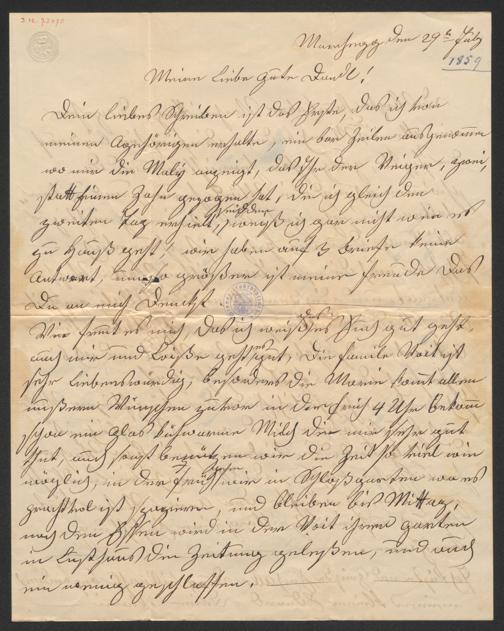 Marchegg den 29ᵗ July
1859
Meine liebe gute Dandl!
Dein liebes Schreiben ist das Erste, das ich von
meinen Angehörigen erhalte, ein par Zeilen ausgenomen
wo mir die Mali anzeigt, das ihr der zwei,
statt einen Zahn gezogen hat, die ich gleich den
zweiten Tag erhielt, seitdem weiß ich gar nicht wie es
zu Hauß geht, wir haben auf 3 Briefe keine
Antwort, um so größer ist meine Freude das
Du an mich denckst
Wie freut es mich das ich weiß das es Euch gut geht,
auch mir und geht es gut, die Familie Voit ist
sehr liebenswürdig, besonders die Marie komt allen
unßern Wünschen zuvor in der Früh 4 Uhr bekom
schon ein Glas kuhwarme Milch die mir sehr gut
thut, auch sonst benützen wir die Zeit so viel wie
möglich, in der Früh gehen wir in Schloßgarten wo es
prachtvol ist spazieren, und bleiben bis Mittag,
nach den Essen wird in der Voit ihren Garten
in Lusthaus die Zeitung geleßen, und auch
ein wenig geschlaffen.